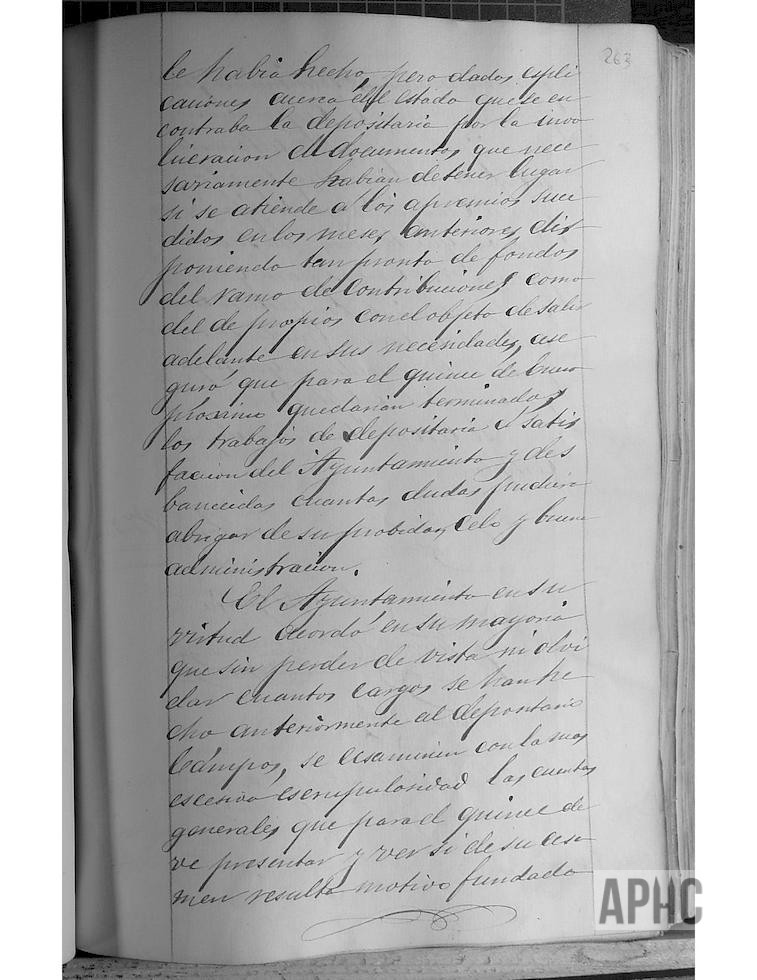 263
le habia hecho, pero dadas espli
caciones acerca del estado que se en
contraba la depositaria por la invo
lucracion de documentos que nece
sariamente habian de tener lugar
si se atiende á los apremios suce
didos en los meses anteriores, dis
poniendo tan pronto de fondos
del ramo de contribuciones como
del de propios con el objeto de salir
adelante en sus necesidades, ase
guró que para el quince de Enero
procsimo quedarian terminados
los trabajos de depositaria á satis
facion del Ayuntamiento y des
banecidas cuantas dudas pudiera
abrigar de su probidad, celo y buena
administracion.
El Ayuntamiento en su
virtud acordó en su mayoria
que sin perder de vista ni olvi
dar cuantos cargos se han he
cho anteriormente al depositario
Campos, se ecsaminen con la mas
escesiva escrupulosidad las cuentas
generales que para el quince de
ve presentar y ver si de su ecsa
men resulta motivo fundado
APHC